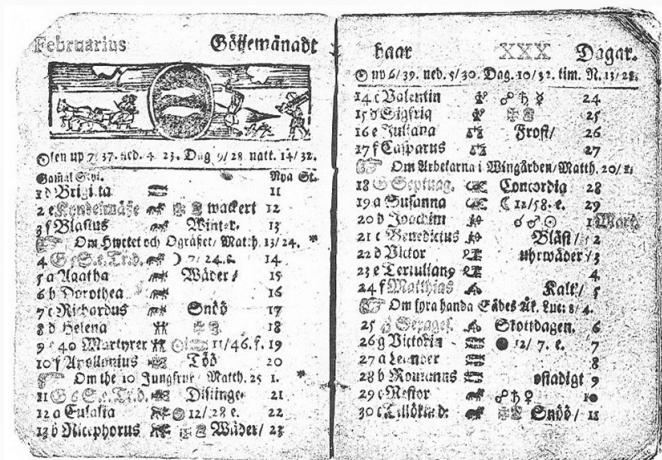 Februarius Götjemånadt
Solen up 7/37. ned. 4 23. Dag 9/28 natt. 14/32.
Gamal Styl. Nya St.
1 d Brigitta 11
2 e Kyndelmässe wackert 12
3 f Blasius Winter. 13
Om Hwetet och Ogräset/ Matth. 13/24. *
4 G 5 S. e. Tr. d. 7/24. e. 14
5 a Agatha Wäder/ 15
6 b Dorothea 16
7 c Richardus Snöö 17
8 d Helena 18
9 e 40 Martyrer 11/46. f. 19
10 f Apollonius Töö 20
Om the 10 Jungfrur Matth. 25 1. *
11 G 6 S. e. Tr. d. Distinge 21
12 a Eulalia 12/28 e. 22
13 b Nicephorus Wäder/ 23
haar XXX Dagar.
up 6/39. ned. 5/30. Dag. 10/32. tim. N. 13/28.
14 c Valentin ☍ ♄ ☿ 24
15 d Sigfrid 25
16 e Juliana Frost/ 26
17 f Casparus 27
Om Arbetarna i Wingården/ Matth. 20/1.
18 G Septuag. Concordia 28
19 a Susanna ☾ 12/58. e. 29
20 b Joachim ☌ ♂ ☉ 1 Mart.
21 c Benedictus Blåst/ 2
22 d Victor uhrwäder/ 3
23 e Tertulian9 4
24 f Matthias Kalt/ 5
Om fyra handa Sädes Åk. Luc. 8/4.
25 G Sexages. Skottdagen. 6
26 g Victorin ● 12/7. e. 7
27 a Leander 8
28 b Romanus ostadigt 9
29 c Nestor ☍ ♄ ♀ 10
30 c Tillökn d: Snöö/ 11